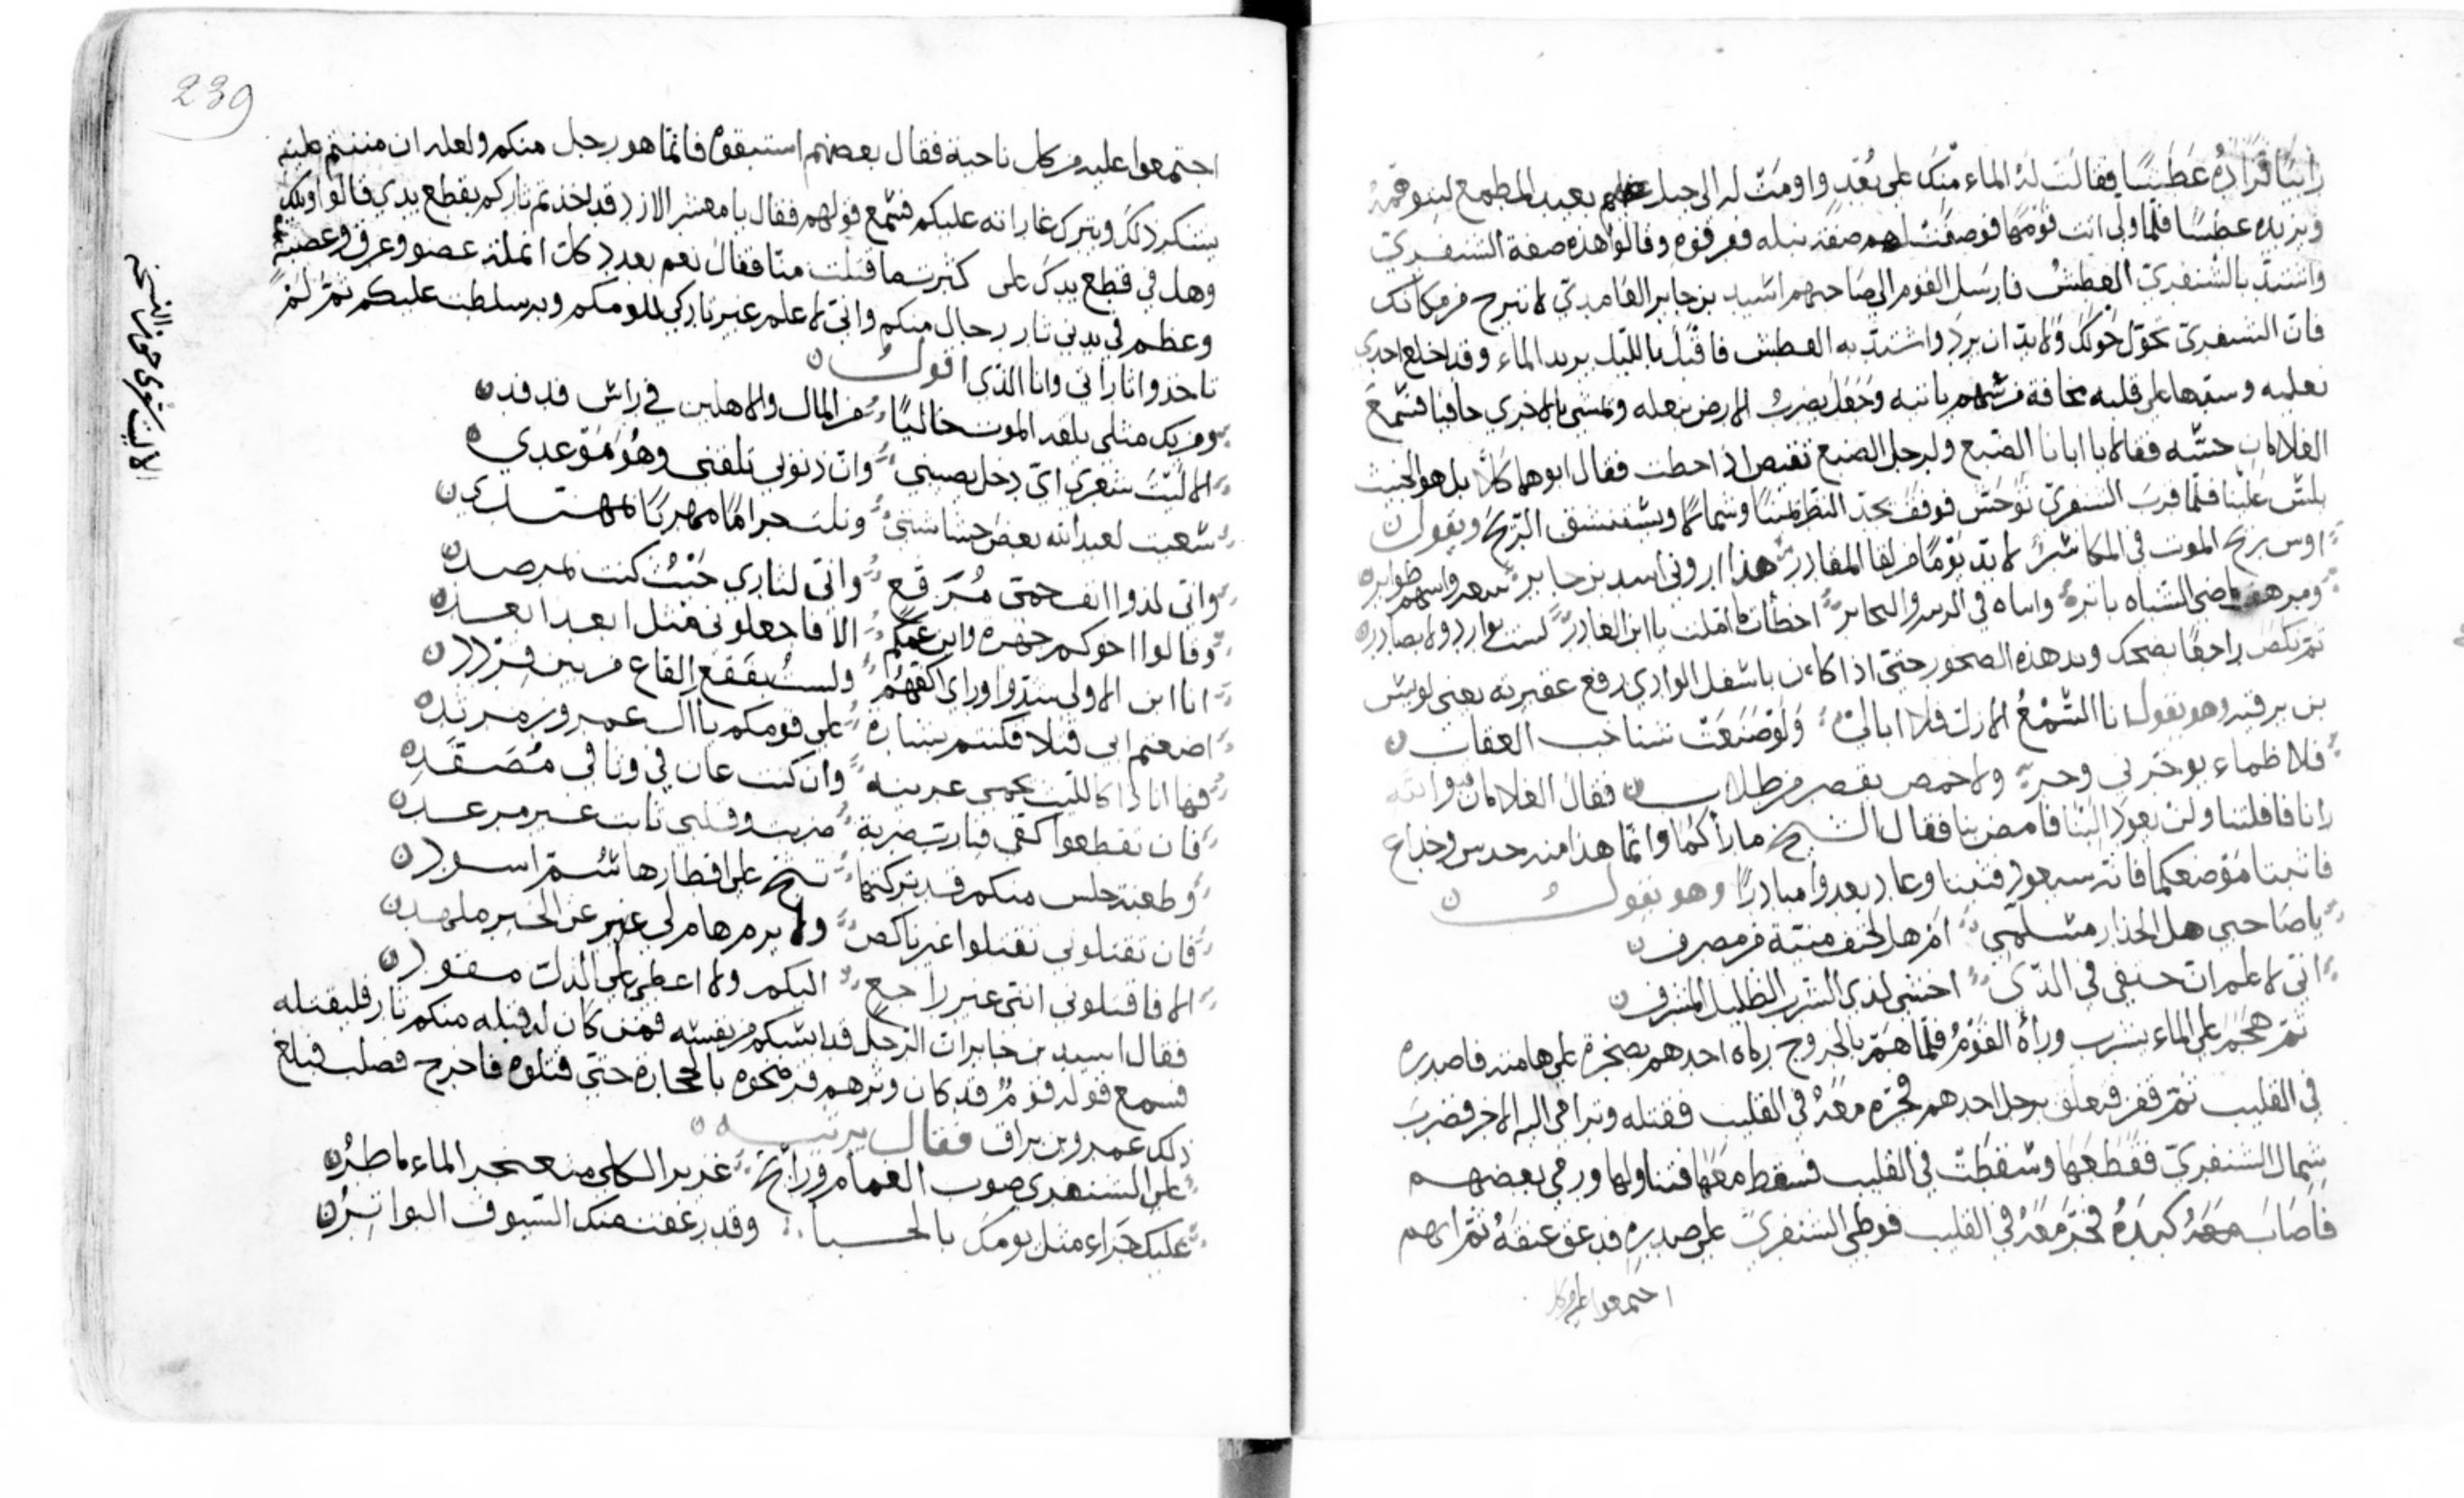 زانيا قراده عطشا فقالت له الماء منك على بعد واومت له الى جبل بعيد المطمع لتوقمه
وتزيده عطشا فلما ولى اتت قومها فوصفت لهم صفة نبله فعرفوه وقالوا هذه صفة الشنفرى
واشتد بالشنفرى العطش فارسل القوم الى صاحبهم اسيد بن جابر الغامدي لا تبرح من مكانك
فان الشنفرى تحول حولك ولا بد ان يرد واشتد به العطش فاقبل بالليل يريد الماء وقد اخلع احدى
نعليه وستها على قلبه مخافة من سهم ياتيه وجعل يضرب الارض بنعله ويمشى بالاخرى حافيا فسمع
الغلامان حسه فقالا يا ابانا الضبع ولرجل الضبع نقيض اذا خطت فقال ابوهما كلا بل هو الخبيث
يلبس علينا فلما قرب الشنفرى توجس فوقف يحد النظر يمينا وشمالا ويستنشق الريح ويقول
اوس ريح الموت فى المكاشر لا بد يوما من لقا المقادر هذا اروني اسد بن جابر
ومرهف ماضى الشباه باتر اخطات ما املت يا ابن الغادر لست بوارد ولا بصادر
ثم نكص راجعا يضحك ويدهده الصخور حتى اذا كان باسفل الوادي رفع عقيرته
وهو يقول انا السمع الازل فلا ابالى ولو صعبت شناخب العقاب
فلا ظماء يوخرني وحر ولا خمص يقصر من طلاب فقال الغلامان والله
رانا فافلتنا ولن يعود الينا فامض بنا فقال الشيخ ما راكما وانما هذا منه حدس وخداع
فاثبتا موضعكما فانه سيعود فثبتنا وعاد يعدوا مبادرا وهو يقول
يا صاحبى هل الحذار مسلمى ام هل لحتف منية من مصرف
انى لاعلم ان حتفى في الذى اخشى لدى الشرب القليل المنزف
ثم هجم على الماء يشرب وراه القوم فلما هم بالخروج رماه احدهم بصخرة على هامته فاصدره
في القليب ثم قفز فتعلق برجل احدهم فجره معه في القليب فقتله وترامى اليه الاخر فضرب
شمال الشنفرى فقطعها وسقطت في القليب فسقط معها فتناولها ورمى بعضهم
فاصاب كبده فخر معه في القليب فوطى الشنفرى على صدره فدق عنقه ثم انهم
اجتمعوا عليه من كل
239
اجتمعوا عليه من كل ناحية فقال بعضهم استبقوه فانما هو رجل منكم ولعله ان مننتم عليه
يشكر ذلك ويترك غاراته عليكم فسمع قولهم فقال يا معشر الازد قد اخذتم ثاركم بقطع يدي قالوا ويلك
وهل في قطع يدك على كثرة ما قتلت منا فقال نعم بعدد كل انملة عضو وعرق وعصبة
وعظم في يدي ثار رجال منكم واني لاعلم غير تاركي للومكم وبسلطت عليكم ثم لم
تاخذوا ثاراتي وانا الذى اقول
ومن يك مثلى يلقه الموت خاليا من المال والاهلين في راس فدفد
الا ليت شعرى اى دخل يصيبني وان ذنوبي تلقنى وهو موعدي
شعيت لعبد الله بعض حشاشتى ونلت حراما مهريا بمهتدى
واني لذو انف حمى مرقع وانى لثاري حيث كنت بمرصد
وقالوا اخوكم جهرة وابن عمكم الا فاجعلوني مثل ابعد ابعد
انا ابن الاولى شدوا وراى اكفهم ولست بفقع القاع من بين قردد
اضعتم ابى قتلا فكنتم شناره على قومكم يا آل عمرو بن مرثد
فها انا ذا كالليث يحمى عرينه وان كنت عان في وثاقي مصفد
فان تقطعوا كفى فيا رب ضربة ضربت وقلبى ثابت غير مرعد
وطعنة خلس منكم قد تركتها تمج على اقطارها سم اسود
فان تقتلوني تقتلوا غير ناكص ولا برم هام لى غير عن الخير ملهد
الا فاقتلوني انني غير راجع اليكم ولا اعطى على الذل مقود
فقال اسيد بن جابر ان الرجل قد ايسكم من نفسه فمن كان له قبله منكم ثار فليقتله
فسمع قوله قوم قد كان وترهم فرضخوه بالحجارة حتى قتلوه فاخرج فصلب فبلغ
ذلك عمرو بن براق فقال يرثيه
على الشنفرى صوب الغمام ورائح غزير الكلى متعنجر الماء ماطر
عليك جزاء مثل يومك بالحبا وقد رعفت منك السيوف البواتر